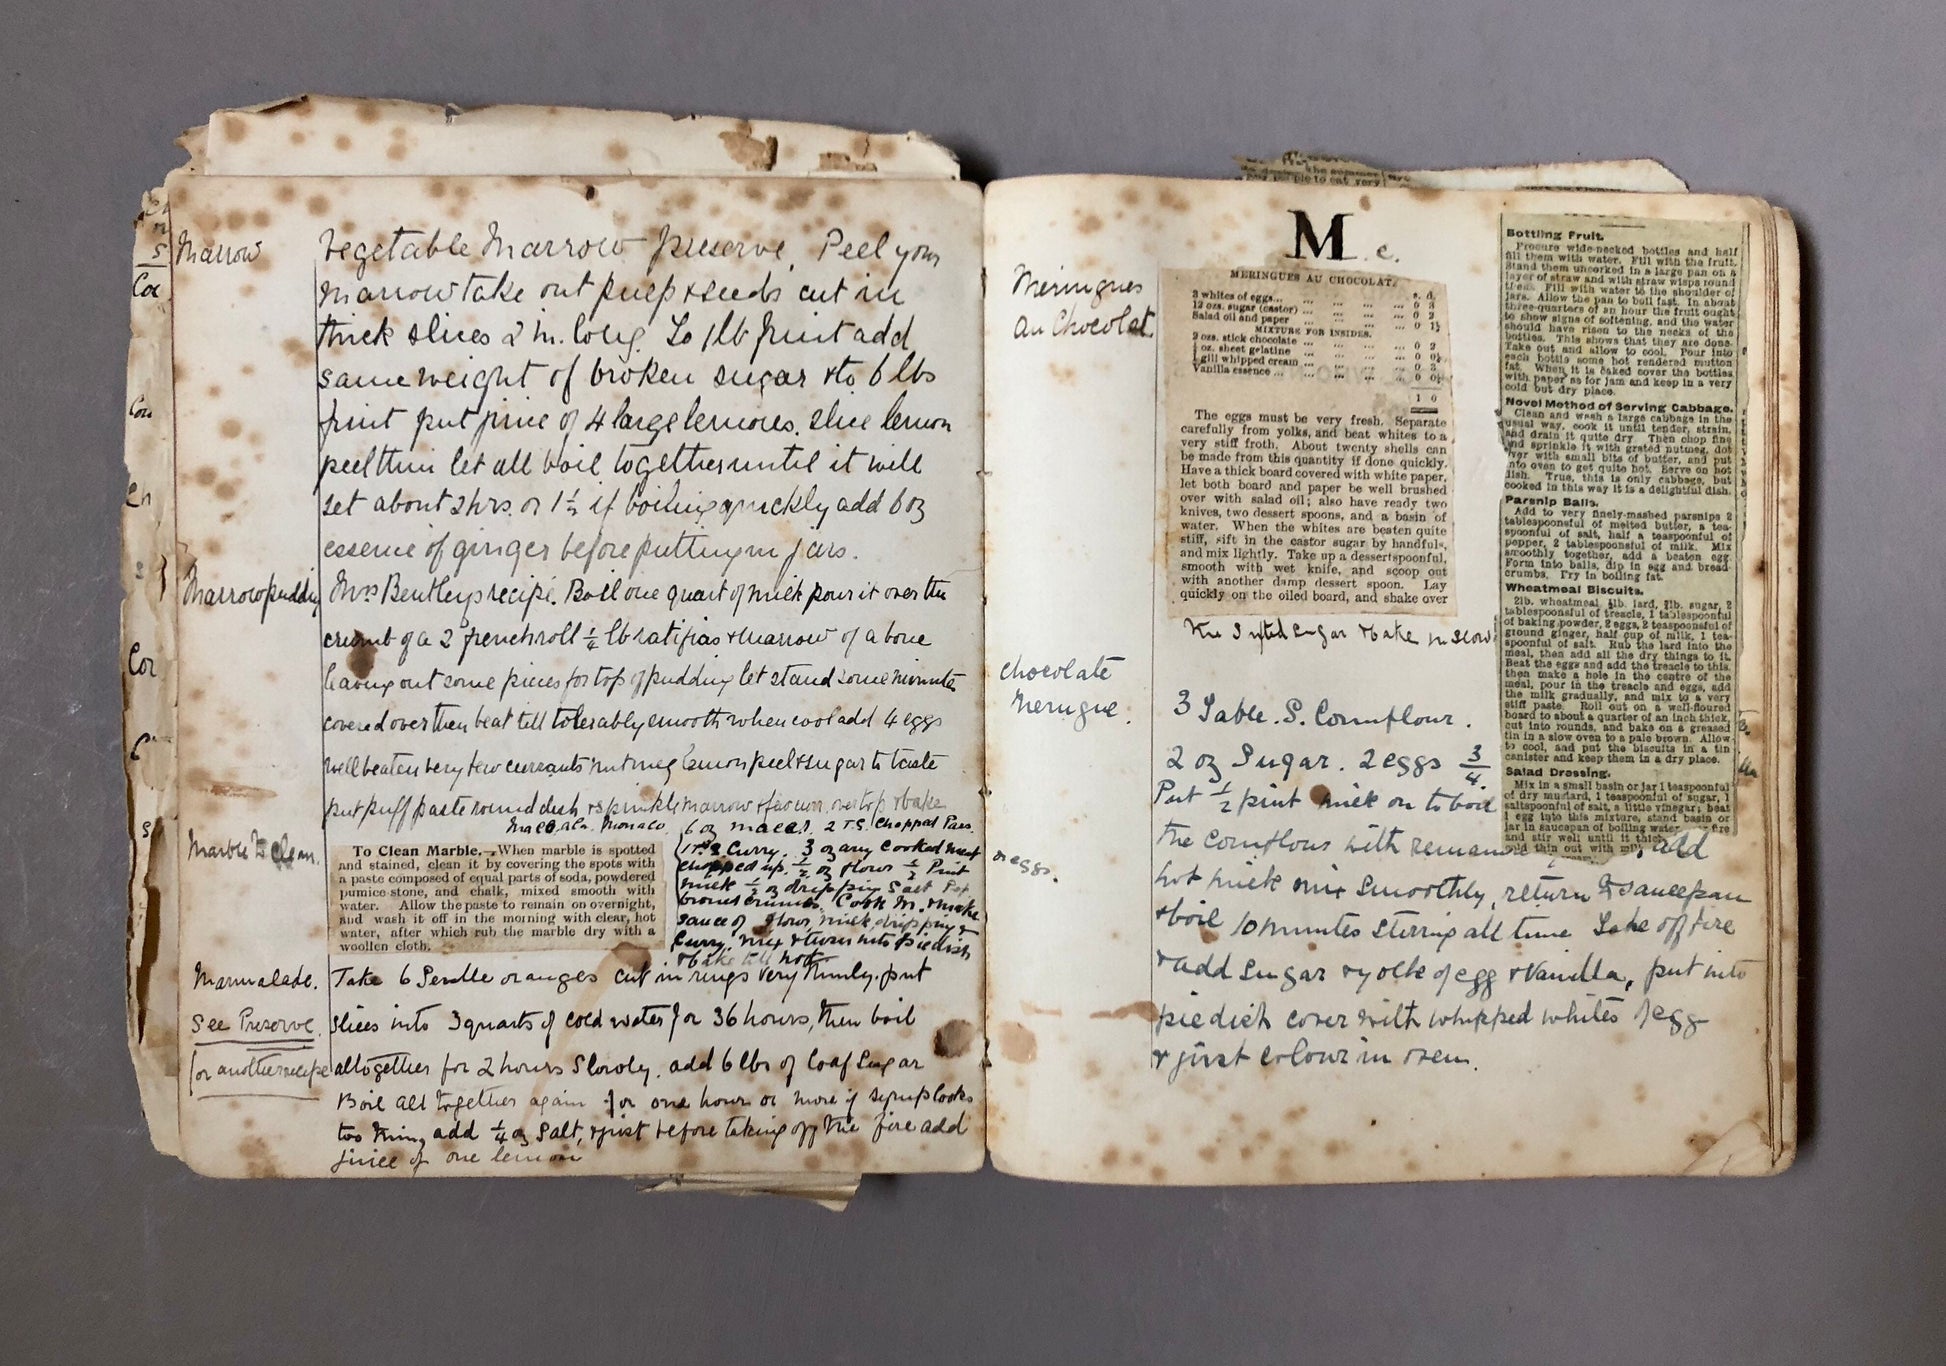 Marrow
Vegetable Marrow preserve. Peel your
marrow take out pulp & seeds cut in
thick slices 2 in. long. To 1 lb fruit add
same weight of broken sugar & to 6 lbs
fruit put juice of 4 large lemons. Slice lemon
peel thin let all boil together until it will
set about 2 hrs. or 1½ if boiling quickly add 6 oz
essence of ginger before putting in jars.
Marrow pudding
Mrs Bentleys recipe. Boil one quart of milk pour it over the
crumb of a 2 french roll ½ lb ratifias & marrow of a bone
leaving out some pieces for top of pudding let stand some minutes
covered over then beat till tolerably smooth when cool add 4 eggs
well beaten very few currants nutmeg lemon peel & sugar to taste
put puff paste round dish & sprinkle marrow & flavour over top & bake
Marble to clean.
To Clean Marble.—When marble is spotted
and stained, clean it by covering the spots with
a paste composed of equal parts of soda, powdered
pumice-stone, and chalk, mixed smooth with
water. Allow the paste to remain on overnight,
and wash it off in the morning with clear, hot
water, after which rub the marble dry with a
woollen cloth.
Monaco.
6 oz macar. 2 T.S. chopped Pars.
Curry. 3 oz any cooked meat
chopped up. ½ oz flour ½ Pint
milk ½ oz dripping Salt Pep
brown crumbs. Cook M. & make
sauce of flour, milk, dripping &
Curry. mix & turn into piedish
& bake till hot
Marmalade.
See Preserve.
for another recipe
Take 6 Seville oranges cut in rings very thinly. put
slices into 3 quarts of cold water for 36 hours, then boil
altogether for 2 hours slowly. add 6 lbs of loaf Sugar
Boil all together again for one hour or more if syrup looks
too thin, add ¼ oz Salt, & just before taking off the fire add
juice of one lemon
Cor
Cou
Ch
Cor
C
M e.
Meringues
au Chocolat.
MERINGUES AU CHOCOLAT.
s. d.
3 whites of eggs... ... ... ... ... 0 3
12 ozs. sugar (castor) ... ... ... ... 0 2
Salad oil and paper ... ... ... ... 0 1½
MIXTURE FOR INSIDES.
2 ozs. stick chocolate ... ... ... ... 0 2
oz. sheet gelatine ... ... ... ... 0 0½
gill whipped cream ... ... ... ... 0 3
Vanilla essence ... ... ... ... 0 0½
1 0
The eggs must be very fresh. Separate
carefully from yolks, and beat whites to a
very stiff froth. About twenty shells can
be made from this quantity if done quickly.
Have a thick board covered with white paper,
let both board and paper be well brushed
over with salad oil; also have ready two
knives, two dessert spoons, and a basin of
water. When the whites are beaten quite
stiff, sift in the castor sugar by handfuls,
and mix lightly. Take up a dessertspoonful,
smooth with wet knife, and scoop out
with another damp dessert spoon. Lay
quickly on the oiled board, and shake over
the sifted sugar & bake in slow
Chocolate
Merugue.
3 Table. S. Cornflour.
2 oz Sugar. 2 eggs 3/4
Put ½ pint milk on to boil
the cornflour with add
or eggs.
hot milk mix smoothly, return to saucepan
& boil 10 minutes stirring all time Take off fire
& add sugar & yolk of egg & Vanilla, put into
piedish cover with whipped whites of egg
& just colour in oven.
Bottling Fruit.
Procure wide-necked bottles and half
fill them with water. Fill with the fruit.
Stand them uncorked in a large pan on a
layer of straw and with straw wisps round
them. Fill with water to the shoulder of
jars. Allow the pan to boil fast. In about
three-quarters of an hour the fruit ought
to show signs of softening, and the water
should have risen to the necks of the
bottles. This shows that they are done.
Take out and allow to cool. Pour into
each bottle some hot rendered mutton
fat. When it is caked cover the bottles
with paper as for jam and keep in a very
cold but dry place.
Novel Method of Serving Cabbage.
Clean and wash a large cabbage in the
usual way, cook it until tender, strain,
and drain it quite dry. Then chop fine
and sprinkle it with grated nutmeg, dot
over with small bits of butter, and put
into oven to get quite hot. Serve on hot
dish. True, this is only cabbage, but
cooked in this way it is a delightful dish.
Parsnip Balls.
Add to very finely-mashed parsnips 2
tablespoonsful of melted butter, a tea-
spoonful of salt, half a teaspoonful of
pepper, 2 tablespoonsful of milk. Mix
smoothly together, add a beaten egg.
Form into balls, dip in egg and bread-
crumbs. Fry in boiling fat.
Wheatmeal Biscuits.
2lb. wheatmeal, lb. lard, lb. sugar, 2
tablespoonsful of treacle, 1 tablespoonful
of baking powder, 2 eggs, 2 teaspoonsful of
ground ginger, half cup of milk, 1 tea-
spoonful of salt. Rub the lard into the
meal, then add all the dry things to it.
Beat the eggs and add the treacle to this,
then make a hole in the centre of the
meal, pour in the treacle and eggs, add
the milk gradually, and mix to a very
stiff paste. Roll out on a well-floured
board to about a quarter of an inch thick,
cut into rounds, and bake on a greased
tin in a slow oven to a pale brown. Allow
to cool, and put the biscuits in a tin
canister and keep them in a dry place.
Salad Dressing.
Mix in a small basin or jar 1 teaspoonful
of dry mustard, 1 teaspoonful of sugar, 1
saltspoonful of salt, a little vinegar; beat
1 egg into this mixture, stand basin or
jar in saucepan of boiling water fire
and stir well until it thick
and thin out with